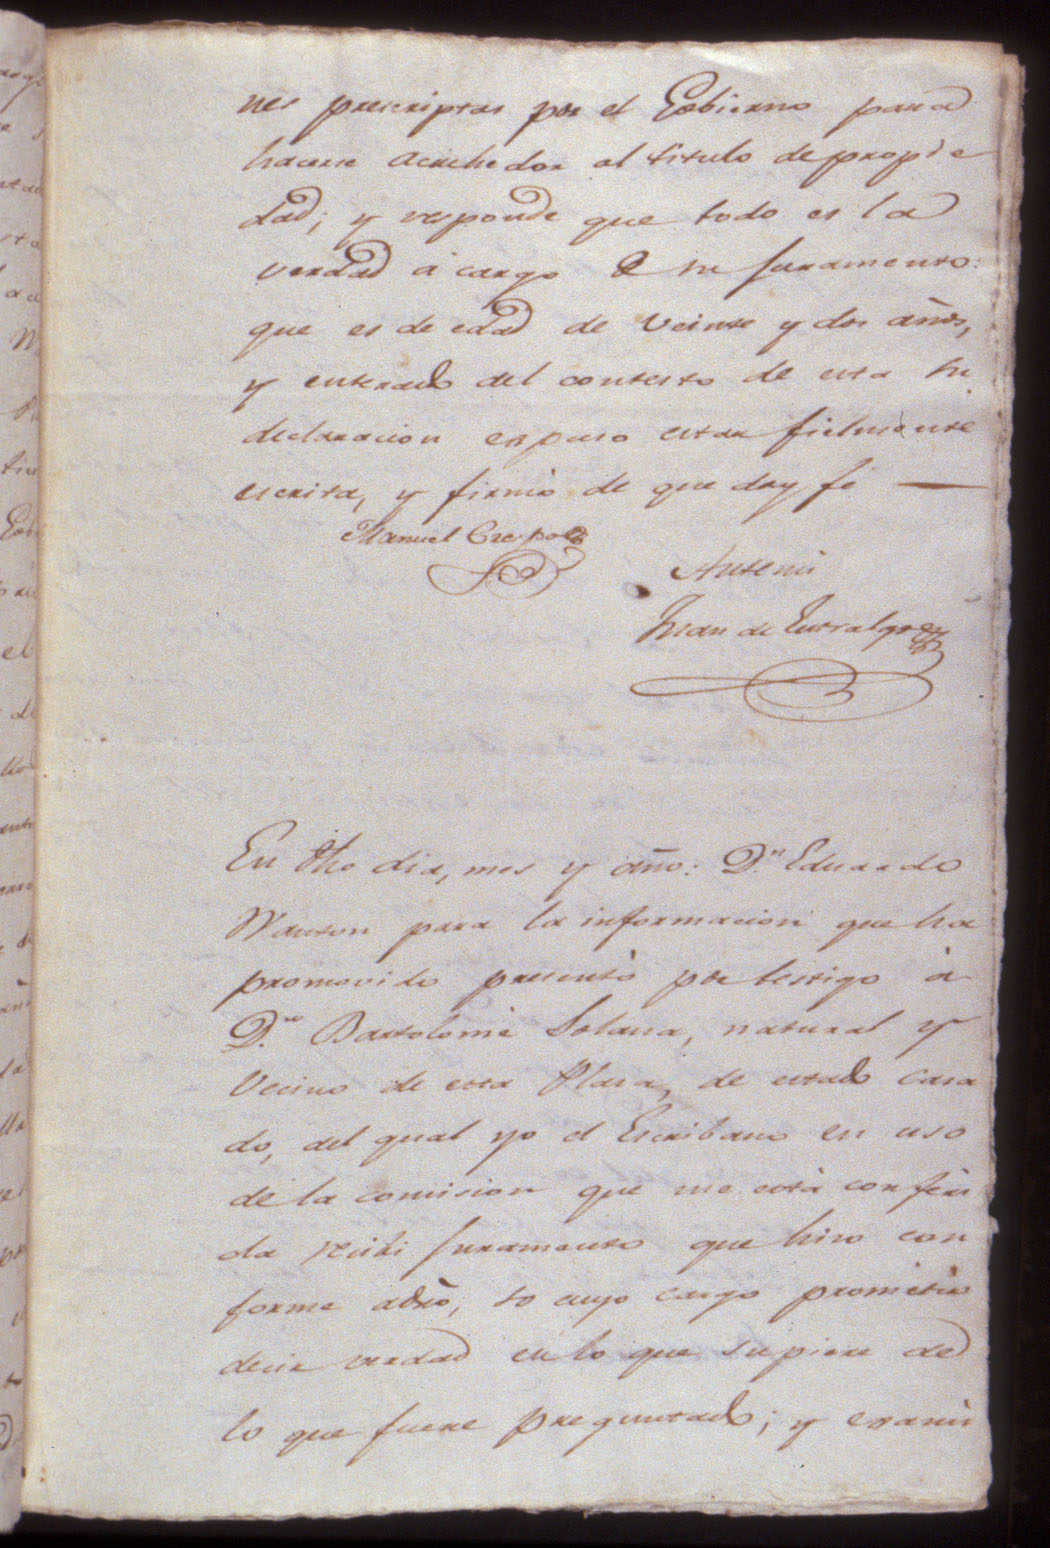 nes prescriptas por el Gobierno para
hacerse acrehedor al titulo de propie
dad; y responde que todo es la
verdad á cargo de su juramento:
que es de edad de veinte y dos años,
y enterado del contesto de esta su
declaracion expuso estar fielmente
escrita, y firmó de que doy fé
Manuel Crespo
Antemi
Juan de
En dho dia, mes y año: D.n Eduardo
Wanton para la informacion que ha
promovido presentó por testigo á
D.n Bartolomé Solana, natural y
Vecino de esta Plasa, de estado casa
do, del qual yo el Escribano en uso
de la comision que me está conferi
da recibi juramento que hiso con
forme a dro, so cuyo cargo prometió
decir verdad en lo que supiere de
lo que fuere preguntado; y examí